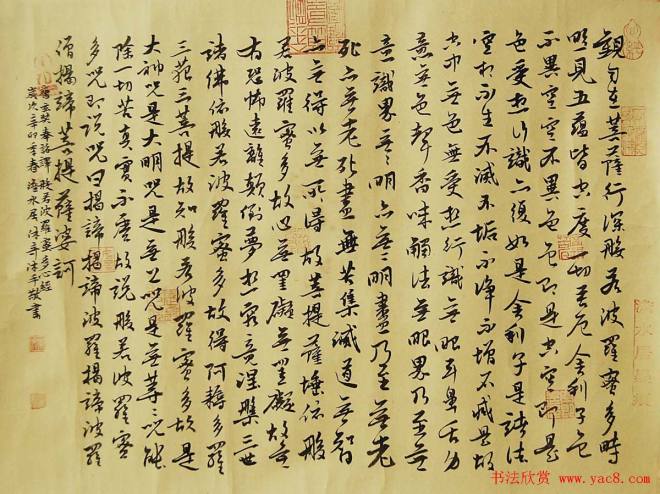 觀自在菩薩行深般若波羅蜜多時
照見五蘊皆空度一切苦厄舍利子色
不異空空不異色色即是空空即是
色受想行識亦復如是舍利子是諸法
空相不生不滅不垢不淨不增不減是故
空中無色無受想行識無眼耳鼻舌身
意無色聲香味觸法無眼界乃至無
意識界無無明亦無無明盡乃至無老
死亦無老死盡無苦集滅道無智
亦無得以無所得故菩提薩埵依般
若波羅蜜多故心無罣礙無罣礙故無
有恐怖遠離顛倒夢想究竟涅槃三世
諸佛依般若波羅蜜多故得阿耨多羅
三藐三菩提故知般若波羅蜜多故是
大神咒是大明咒是無上咒是無等〻咒能
除一切苦真實不虛故說般若波羅蜜
多咒即說咒曰揭諦揭諦波羅揭諦波羅
僧揭諦菩提薩婆訶
唐玄奘奉詔譯般若波羅蜜多心經
歲次辛卯春
书法欣赏 www.yac8.com